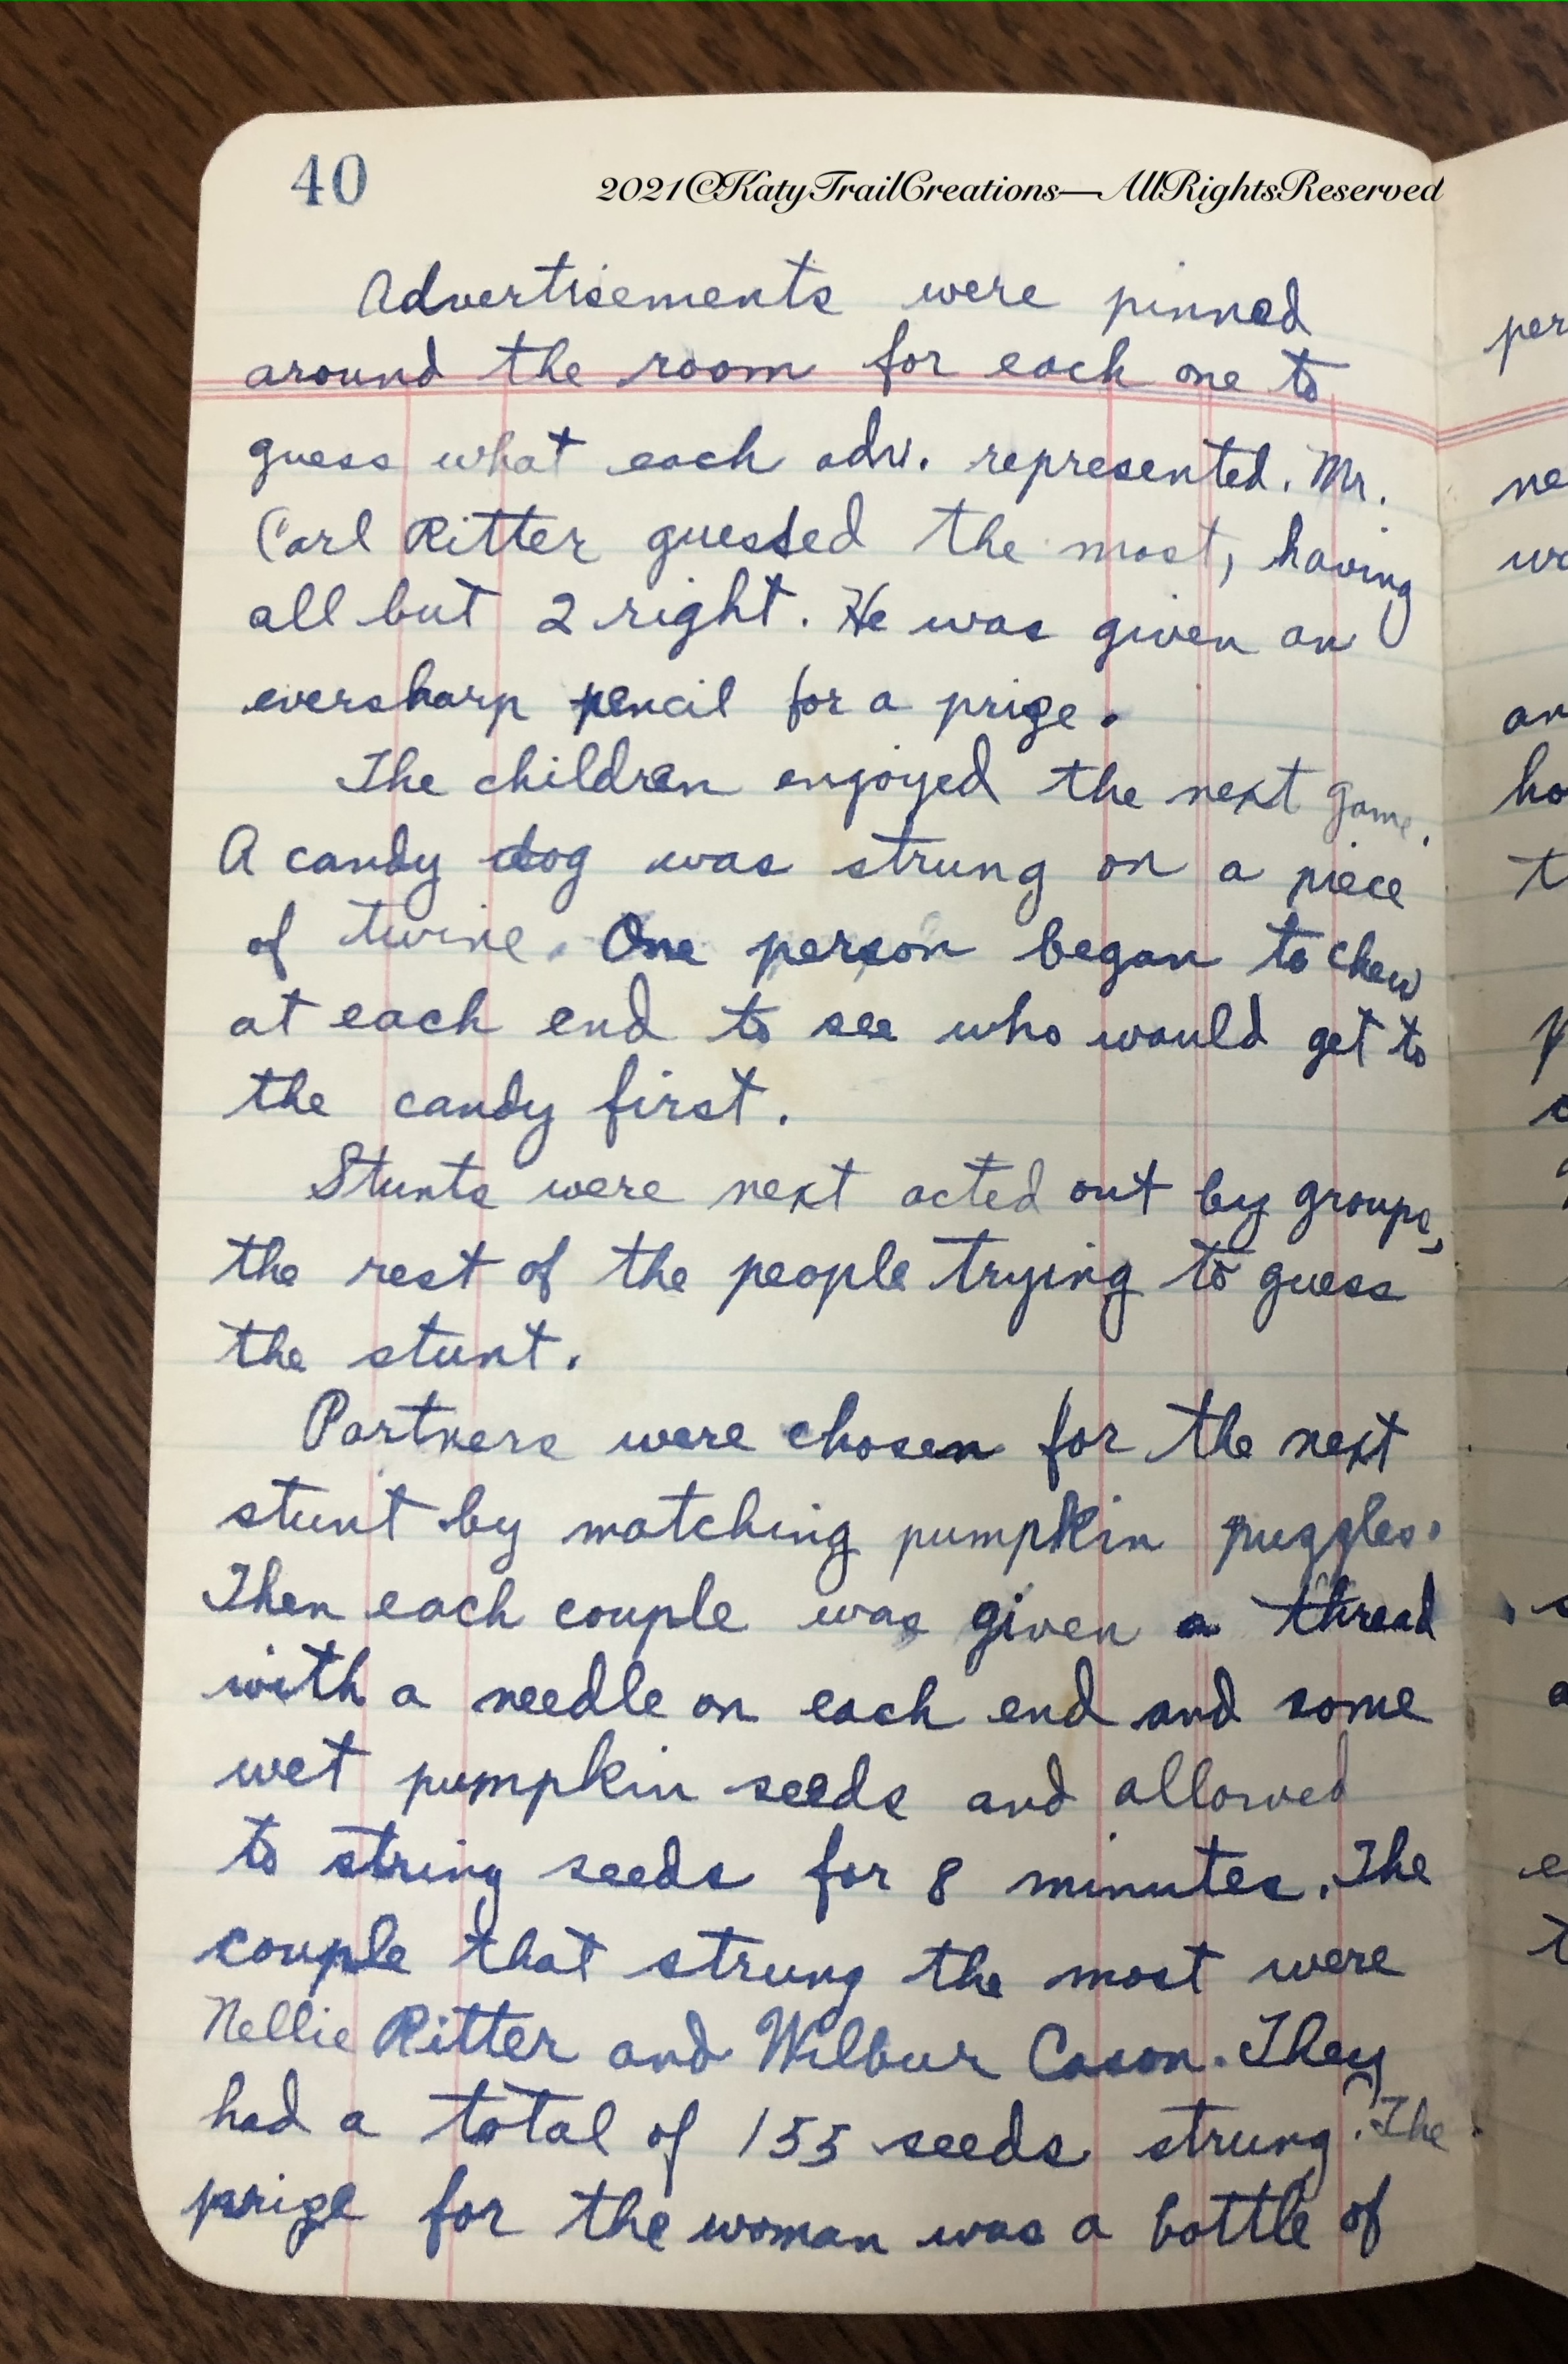 40
2021©KatyTrailCreations—AllRightsReserved
Advertisements were pinned
around the room for each one to
guess what each adv. represented. Mr.
Carl Ritter guessed the most, having
all but 2 right. He was given an
eversharp pencil for a prize.
The children enjoyed the next game.
A candy dog was strung on a piece
of twine. One person began to chew
at each end to see who would get to
the candy first.
Stunts were next acted out by groups,
the rest of the people trying to guess
the stunt.
Partners were chosen for the next
stunt by matching pumpkin puzzles.
Then each couple was given a thread
with a needle on each end and some
wet pumpkin seeds and allowed
to string seeds for 8 minutes. The
couple that strung the most were
Nellie Ritter and Wilbur Cason. They
had a total of 155 seeds strung. The
prize for the woman was a bottle of